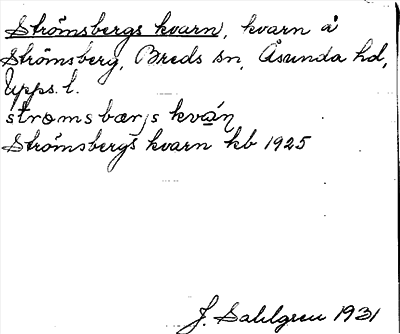 Strömsbergs kvarn, kvarn å
Strömsberg, Breds sn, Åsunda hd,
Upps. l.
Strömsbergs kvarn kb 1925
J. Sahlgren 1931